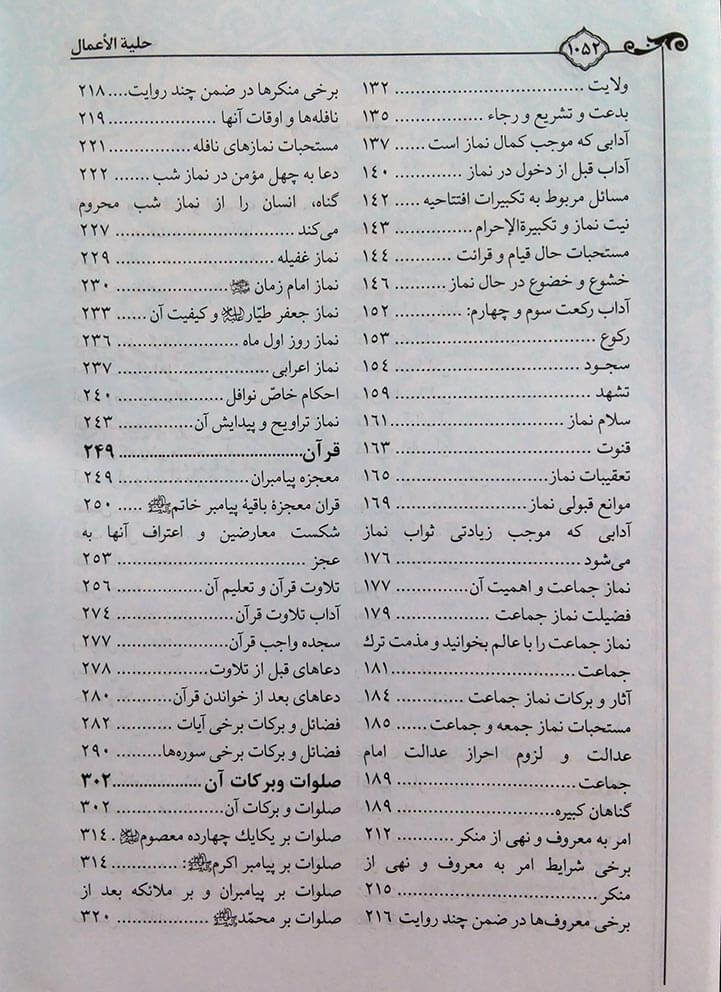 ۱۰۵۲
حلیة الأعمال
ولایت ................................ ۱۳۲
بدعت و تشریع و رجاء ................ ۱۳۵
آدابی که موجب کمال نماز است ...... ۱۳۷
آداب قبل از دخول در نماز ............ ۱۴۰
مسائل مربوط به تکبیرات افتتاحیه ..... ۱۴۲
نیت نماز و تکبیرة‌الإحرام ............... ۱۴۳
مستحبات حال قیام و قرائت .......... ۱۴۴
خشوع و خضوع در حال نماز .......... ۱۴۶
آداب رکعت سوم و چهارم: ............. ۱۵۲
رکوع ................................... ۱۵۳
سجـود ................................. ۱۵۴
تشهد .................................. ۱۵۹
سلام نماز .............................. ۱۶۱
قنوت ................................... ۱۶۳
تعقیبات نماز ........................... ۱۶۵
موانع قبولی نماز ........................ ۱۶۹
آدابی که موجب زیادتی ثواب نماز
می‌شود ................................ ۱۷۶
نماز جماعت و اهمیت آن .............. ۱۷۷
فضیلت نماز جماعت .................. ۱۷۹
نماز جماعت را با عالم بخوانید و مذمت ترك
جماعت ................................ ۱۸۱
آثار و برکات نماز جماعت ............. ۱۸۴
مستحبات نماز جمعه و جماعت ...... ۱۸۵
عدالت و لزوم احراز عدالت امام
جماعت ............................... ۱۸۹
گناهان کبیره ........................... ۱۸۹
امر به معروف و نهی از منکر .......... ۲۱۲
برخی شرایط امر به معروف و نهی از
منکر ................................... ۲۱۵
برخی معروف‌ها در ضمن چند روایت ۲۱۶
برخی منکرها در ضمن چند روایت .... ۲۱۸
نافله‌ها و اوقات آنها ................... ۲۱۹
مستحبات نمازهای نافله .............. ۲۲۱
دعا به چهل مؤمن در نماز شب ....... ۲۲۲
گناه، انسان را از نماز شب محروم
می‌کند ................................. ۲۲۷
نماز غفیله ............................. ۲۲۹
نماز امام زمان ......................... ۲۳۰
نماز جعفر طیّار و کیفیت آن ...... ۲۳۳
نماز روز اول ماه ........................ ۲۳۶
نماز اعرابی ............................. ۲۳۷
احکام خاصّ نوافل .................... ۲۴۰
نماز تراویح و پیدایش آن .............. ۲۴۳
قرآن ................................... ۲۴۹
معجزه پیامبران ........................ ۲۴۹
قران معجزة باقیة پیامبر خاتم ..... ۲۵۰
شکست معارضین و اعتراف آنها به
عجز ................................... ۲۵۳
تلاوت قرآن و تعلیم آن ................ ۲۵۶
آداب تلاوت قرآن ...................... ۲۷۴
سجده واجب قرآن ..................... ۲۷۷
دعاهای قبل از تلاوت ................. ۲۷۸
دعاهای بعد از خواندن قرآن ........... ۲۸۰
فضائل و برکات برخی آیات ........... ۲۸۲
فضائل و برکات برخی سوره‌ها ......... ۲۹۰
صلوات وبرکات آن .................... ۳۰۲
صلوات و برکات آن .................... ۳۰۲
صلوات بر یکایك چهارده معصوم . ۳۱۴
صلوات بر پیامبر اکرم : ............ ۳۱۴
صلوات بر پیامبران و بر ملائکه بعد از
صلوات بر محمّد ................. ۳۲۰